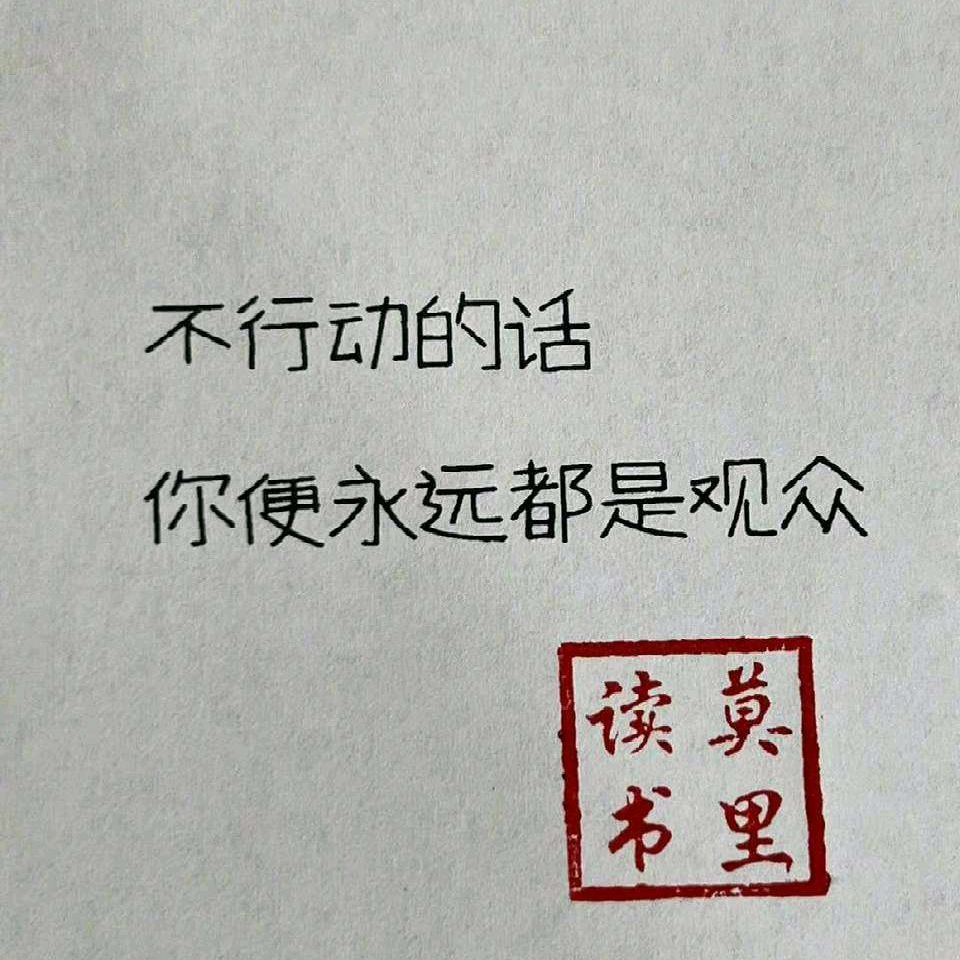 不行动的话
你便永远都是观众
莫里
读书